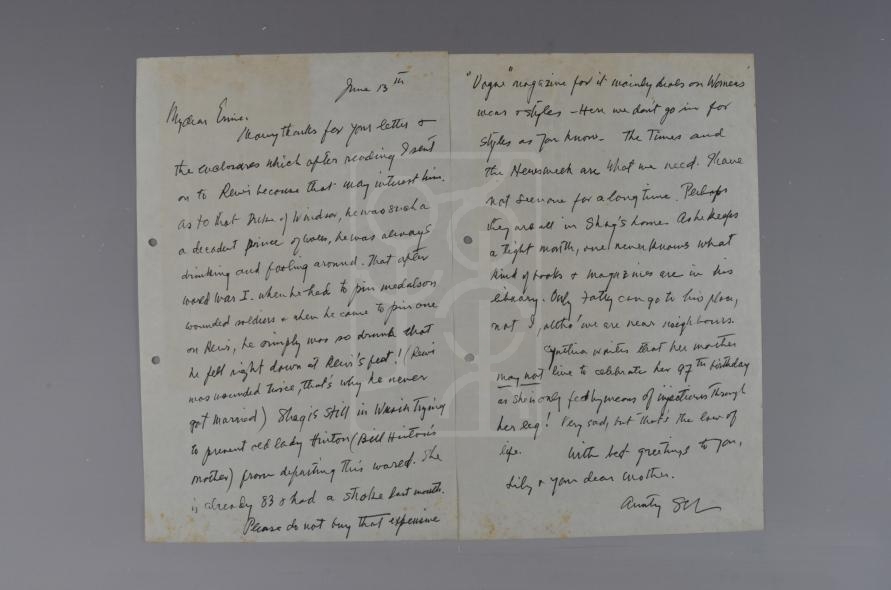 June 13th
My dear Ernie.
Many thanks for your letter &
the enclosures which after reading I sent
on to Rewi because that may interest him.
As to that Duke of Windsor, he was such a
a decadent prince of wales, he was always
drinking and fooling around. That after
world war I. when he had to pin medals on
wounded soldiers & when he came to pin one
on Rewi, he simply was so drunk that
he fell right down at Rewi's feet! (Rewi
was wounded twice, that's why he never
got married) Shag is still in trying
to prevent old lady Hinton (Bill Hinton's
mother) from departing this world. She
is already 83 & had a stroke last month.
Please do not buy that expensive
"Vogue" magazine for it mainly deals on Womens
wear & styles - Here we don't go in for
styles as you know - The Times and
the Newsweek are what we need. I have
not seen one for a long time. Perhaps
they are all in Shag's home. As he keeps
a tight mouth, one never knows what
kind of books & magazines are in his
library. Only Fatty can go to his place,
not I, altho' we are near neighbours.
Cynthia writes that her mother
may not live to celebrate her 97th birthday
as she is only fed by means of injections through
her leg! Very sad, but that's the law of
life. With best greetings to you,
& your dear mother.
Aunty SCL